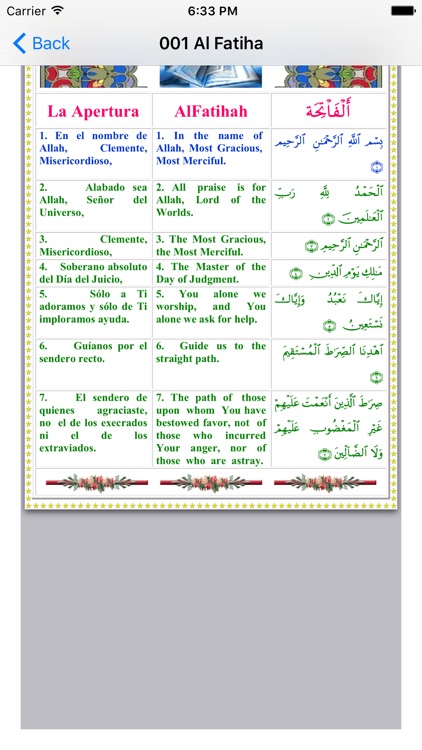 Carrier 6:33 PM
Back 001 Al Fatiha
La Apertura
1. En el nombre de
Allah, Clemente,
Misericordioso,
2. Alabado sea
Allah, Señor del
Universo,
3. Clemente,
Misericordioso,
4. Soberano absoluto
del Día del Juicio,
5. Sólo a Ti
adoramos y sólo de Ti
imploramos ayuda.
6. Guíanos por el
sendero recto.
7. El sendero de
quienes agraciaste,
no el de los execrados
ni el de los
extraviados.
AlFatihah
1. In the name of
Allah, Most Gracious,
Most Merciful.
2. All praise is for
Allah, Lord of the
Worlds.
3. The Most Gracious,
the Most Merciful.
4. The Master of the
Day of Judgment.
5. You alone we
worship, and You
alone we ask for help.
6. Guide us to the
straight path.
7. The path of those
upon whom You have
bestowed favor, not of
those who incurred
Your anger, nor of
those who are astray.
ٱلْفَاتِحَة
بِسْمِ ٱللَّهِ ٱلرَّحْمَٰنِ ٱلرَّحِيمِ
١
ٱلْحَمْدُ لِلَّهِ رَبِّ
ٱلْعَٰلَمِينَ ٢
ٱلرَّحْمَٰنِ ٱلرَّحِيمِ ٣
مَٰلِكِ يَوْمِ ٱلدِّينِ ٤
إِيَّاكَ نَعْبُدُ وَإِيَّاكَ
نَسْتَعِينُ ٥
ٱهْدِنَا ٱلصِّرَٰطَ ٱلْمُسْتَقِيمَ
٦
صِرَٰطَ ٱلَّذِينَ أَنْعَمْتَ عَلَيْهِمْ
غَيْرِ ٱلْمَغْضُوبِ عَلَيْهِمْ
وَلَا ٱلضَّآلِّينَ ٧